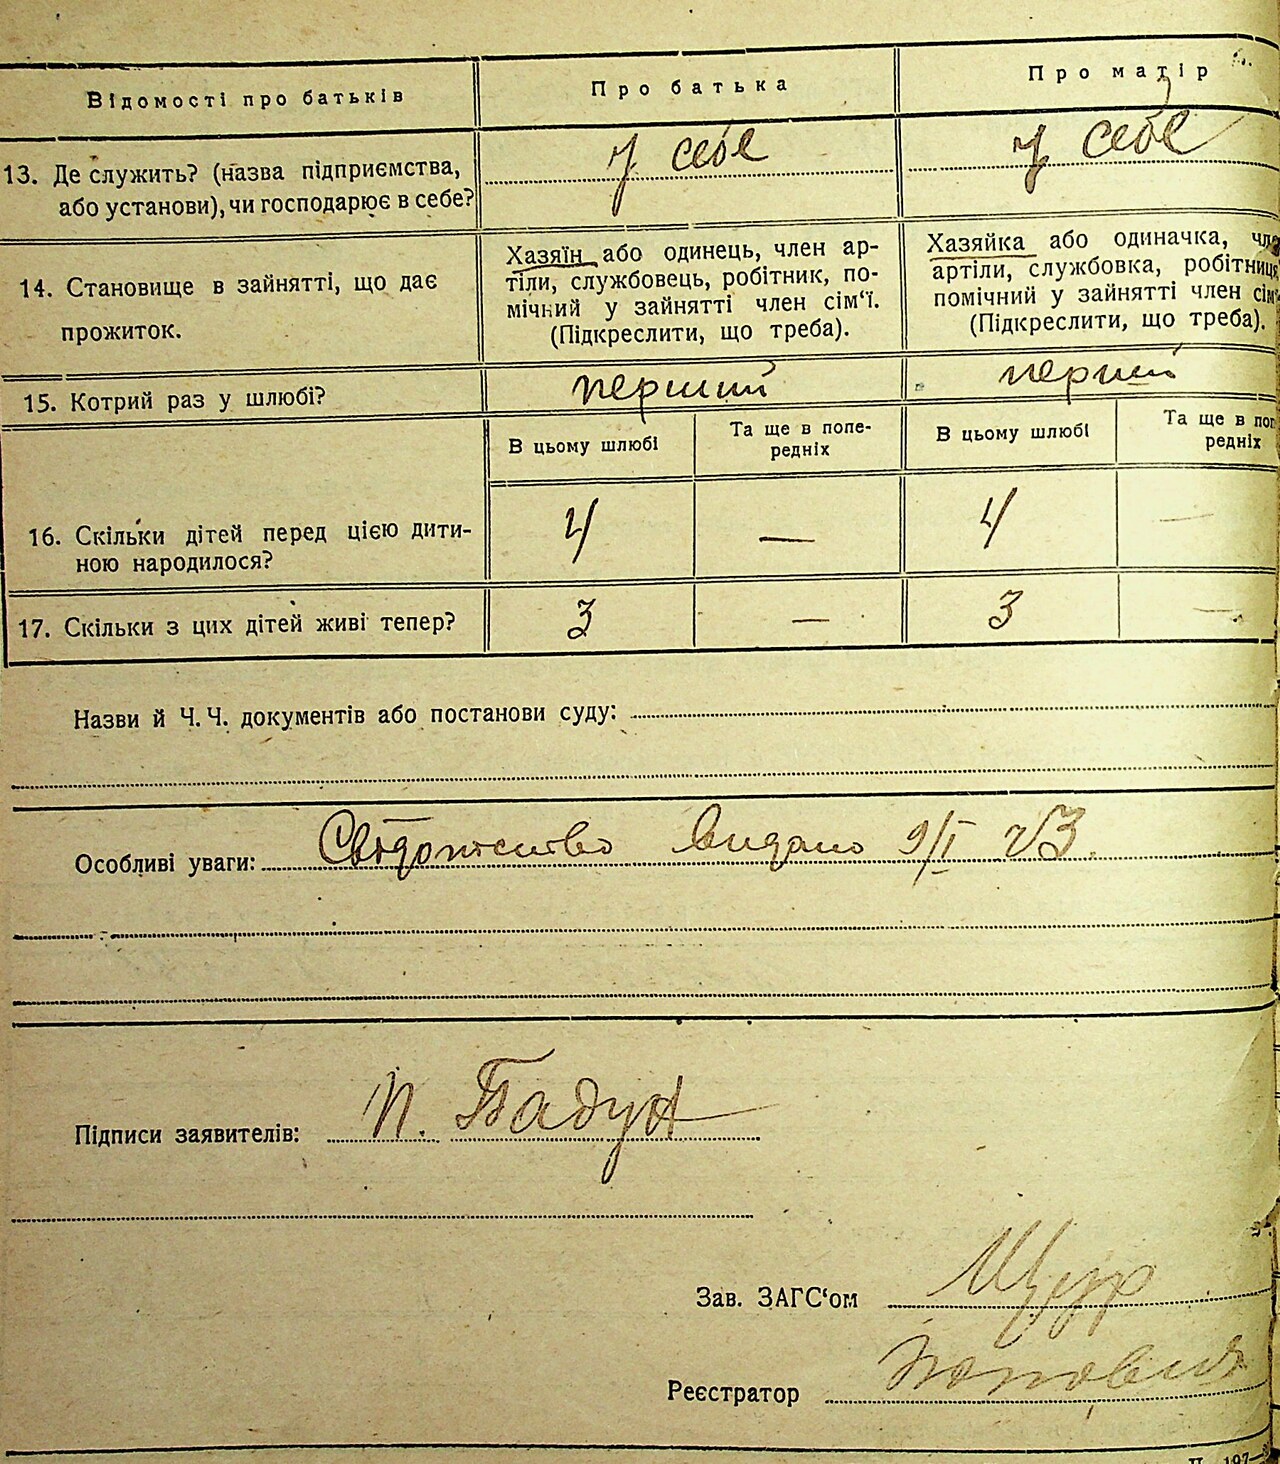 Відомості про батьків
Про батька
Про матір
13. Де служить? (назва підприємства,
або установи), чи господарює в себе?
у себе
у себе
14. Становище в зайнятті, що дає
прожиток.
Хазяїн або одинець, член ар-
тіли, службовець, робітник, по-
мічний у зайнятті член сім‘ї.
(Підкреслити, що треба).
Хазяйка або одиначка, чле
артіли, службовка, робітниця
помічний у зайнятті член сім‘
(Підкреслити, що треба).
15. Котрий раз у шлюбі?
перший
перший
В цьому шлюбі
Та ще в попе-
редніх
В цьому шлюбі
Та ще в поп
редніх
16. Скільки дітей перед цією дити-
ною народилося?
4 —
4 —
17. Скільки з цих дітей живі тепер?
3 —
3 —
Назви й Ч. Ч. документів або постанови суду:
Особливі уваги: Свідотство видано 9/I
Підписи заявителів: П. Бадун
Зав. ЗАГС‘ом Щур
Реєстратор